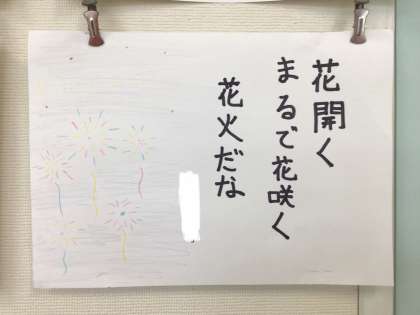 花開く
まるで花咲く
花火だな